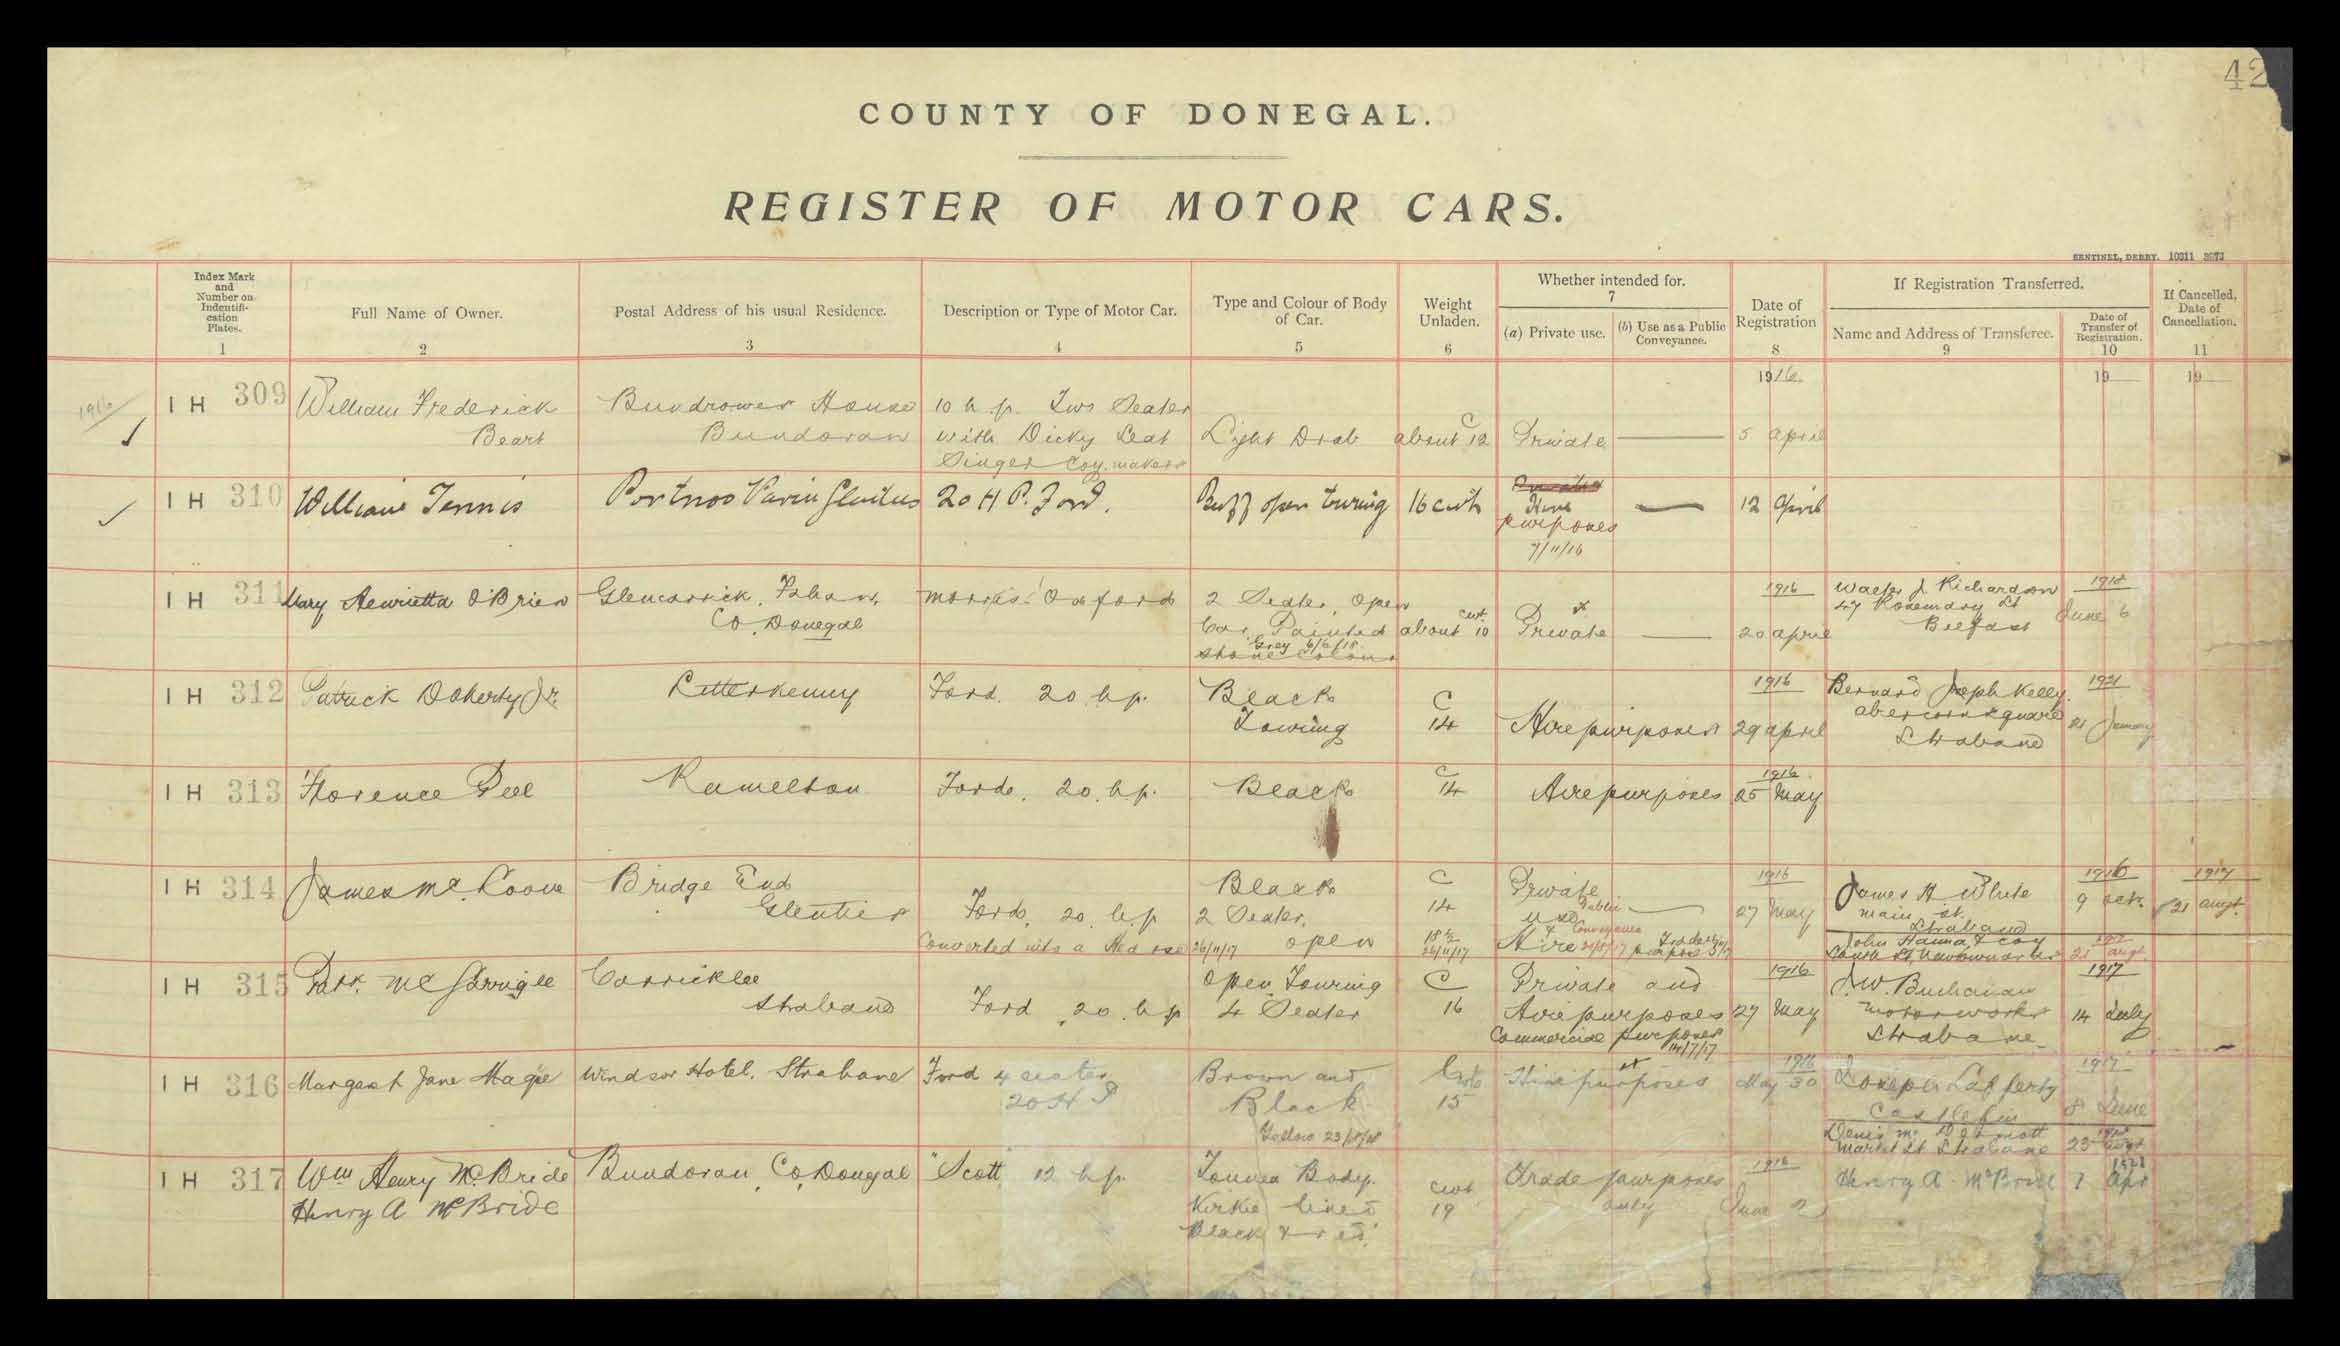 42
COUNTY OF DONEGAL.
REGISTER OF MOTOR CARS.
SENTINEL, DERRY. 10311
Index Mark and Number on Indentifi-cation Plates. 1
Full Name of Owner. 2
Postal Address of his usual Residence. 3
Description or Type of Motor Car. 4
Type and Colour of Body of Car. 5
Weight Unladen. 6
Whether intended for. 7
(a) Private use.
(b) Use as a Public Conveyance.
Date of Registration 8
If Registration Transferred.
Name and Address of Transferee. 9
Date of Transfer of Registration. 10
If Cancelled, Date of Cancellation. 11
1916 19 19
1916 ✓
IH 309 William Frederick Beart
Bundrowes House
Bundoran
10 h.p. Two Seater
with Dicky Seat
Singer Coy. makers
Light Drab
about C 12
Private
5 April
✓ IH 310 William Tennis
Portnoo
20 H P. Ford.
Buff open touring
16 cwts
Private
Hire
purposes
7/11/16
12 April
IH 311 Mary Henrietta O'Brien
Glencarrick, Fahan,
Co. Donegal
Morris-Oxford
2 Seater, Open
Car, Painted
Grey 6/6/18
Stone Colour
about cwt 10
Private
1916
20 April
Walter J Richardson
47 Rosemary St
Belfast
1918
June 6
IH 312 Patrick Doherty Jr.
Letterkenny
Ford. 20 h.p.
Black
Touring
C
14
Hire purposes
1916
29 April
Bernard Joseph Kelly
abercorn square
Strabane
1921
21 January
IH 313 Florence Peel
Ramelton
Ford, 20 h.p.
Black
C
14
Hire purposes
1916
25 May
IH 314 James Mc. Loone
Bridge End
Glenties
Ford, 20 h.p
Converted into a
26/11/17
Black
2 Seater,
open
C
14
18½
26/11/17
Private
use
Public
Conveyance
& Hire
Trade
purposes
1916
27 May
James H White
main st.
Strabane
John Hanna & Coy
South St Newtownards
1916
9 Oct.
1917
21 augt.
1917
21 augt.
IH 315 Patk. Mc Gonigle
Carricklee
Strabane
Ford, 20 h p
Open Touring
4 Seater
C
16
Private and
Hire purposes
Commercial purposes
14/7/17
1916
27 May
J.W. Buchanan
Motor works
Strabane
1917
14 July
IH 316 Margaret Jane Magee
Windsor Hotel, Strabane
Ford 4 seater
20 H P
Brown and
Black
Yellow
Cwts
15
Hire purposes
1916
May 30
Joseph Lafferty
Castlefin
Denis Mc Dermott
Market St Strabane
1917
8 June
23 Augt
IH 317 Wm Henry McBride
Henry A McBride
Bundoran, Co. Donegal
"Scott" 12 h.p.
Body.
lined
Black & red.
cwt
19
Trade purposes
only
1916
June 2
Henry A. McBride
7 Apr